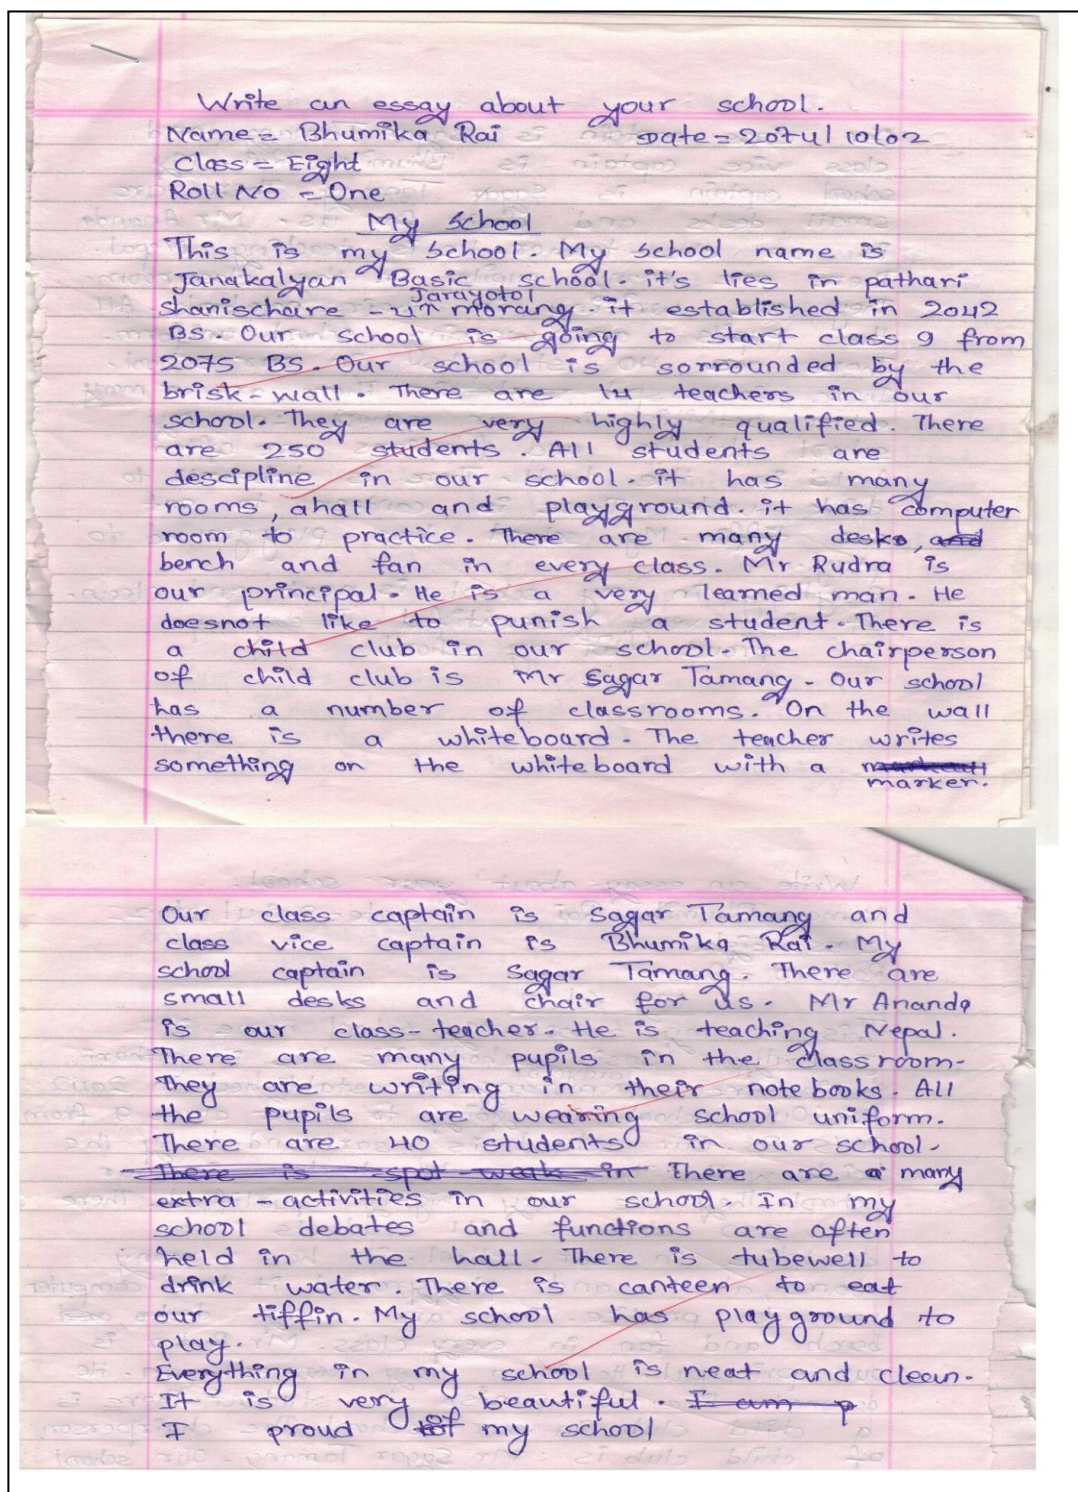 Write an essay about your school.
Name = Bhumika Rai Date = 2074/10/02
Class = Eight
Roll No = One
My school
This is my school. My school name is
Janakalyan Basic school. it's lies in pathari
Jarayotol
shanischare - morang. it established in 2042
BS. Our school is going to start class 9 from
2075 BS. Our school is sorrounded by the
brisk-wall. There are 14 teachers in our
school. They are very highly qualified. There
are 250 students. All students are
descipline in our school. it has many
rooms, ahall and playground. it has computer
room to practice. There are many desks, and
bench and fan in every class. Mr Rudra is
our principal. He is a very learned man. He
doesnot like to punish a student. There is
a child club in our school. The chairperson
of child club is Mr Sagar Tamang. Our school
has a number of classrooms. On the wall
there is a whiteboard. The teacher writes
something on the whiteboard with a
marker.
Our class captain is Sagar Tamang and
class vice captain is Bhumika Rai. My
school captain is Sagar Tamang. There are
small desks and chair for us. Mr Ananda
is our class-teacher. He is teaching Nepal.
There are many pupils in the classroom.
They are writing in their note books. All
the pupils are wearing school uniform.
There are 40 students in our school.
There is spot weak in There are a many
extra-activities in our school. In my
school debates and functions are often
held in the hall. There is tubewell to
drink water. There is canteen to eat
our tiffin. My school has playground to
play.
Everything in my school is neat and clean.
It is very beautiful. I am p
I proud of my school